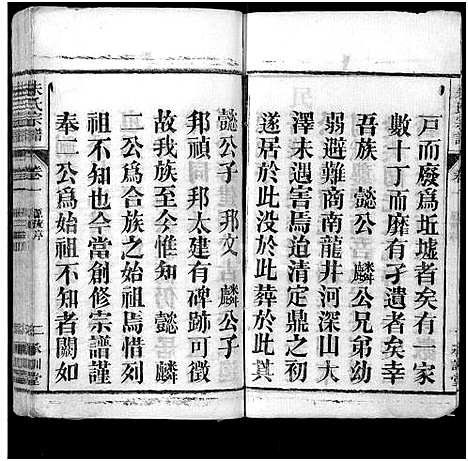 戸而廢爲坵墟者矣有一家
數十丁而靡有孑遺者矣幸
吾族 懿公 麟公兄弟幼
弱避難商南龍井河深山大
澤未遇害焉迨清定鼎之初
遂居於此卜葬於此其
懿公子 邦文 麟公子
邦禎同邦太建有碑跡可徴
故我族至今惟知 懿 麟
二公爲合族之始祖焉惜列
祖不知也今當創修宗譜謹
奉二公爲始祖不知者闕如
朱氏宗譜
卷一
二
承訓堂